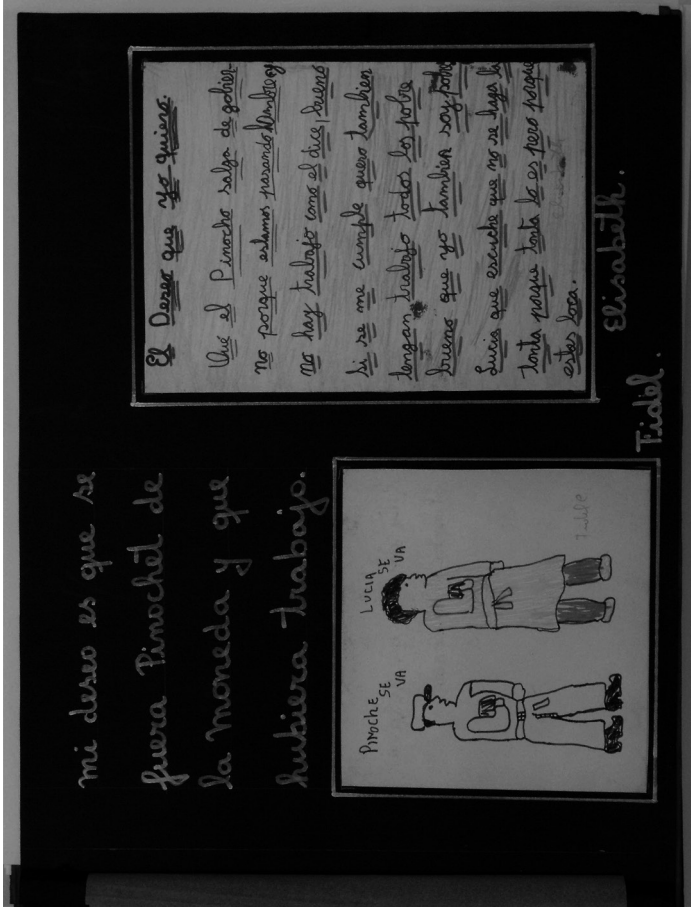 mi deseo es que se
fuera Pinochet de
la moneda y que
hubiera trabajo.
PINOCHE
SE
VA
LUCIA
SE
VA
Fidel
Fidel.
El Deseo que yo quiero.
Que el Pinocho salga de gobier-
no porque estamos pasando hambre y
no hay trabajo como el dice, bueno
si se me cumple quero tambien
tengan trabajo todos los pobre
bueno que yo tambien soy pobre
Lucia que escuche que no se haga la
tonta porque tonta lo es pero porque
estas loca.
Elisabeth.